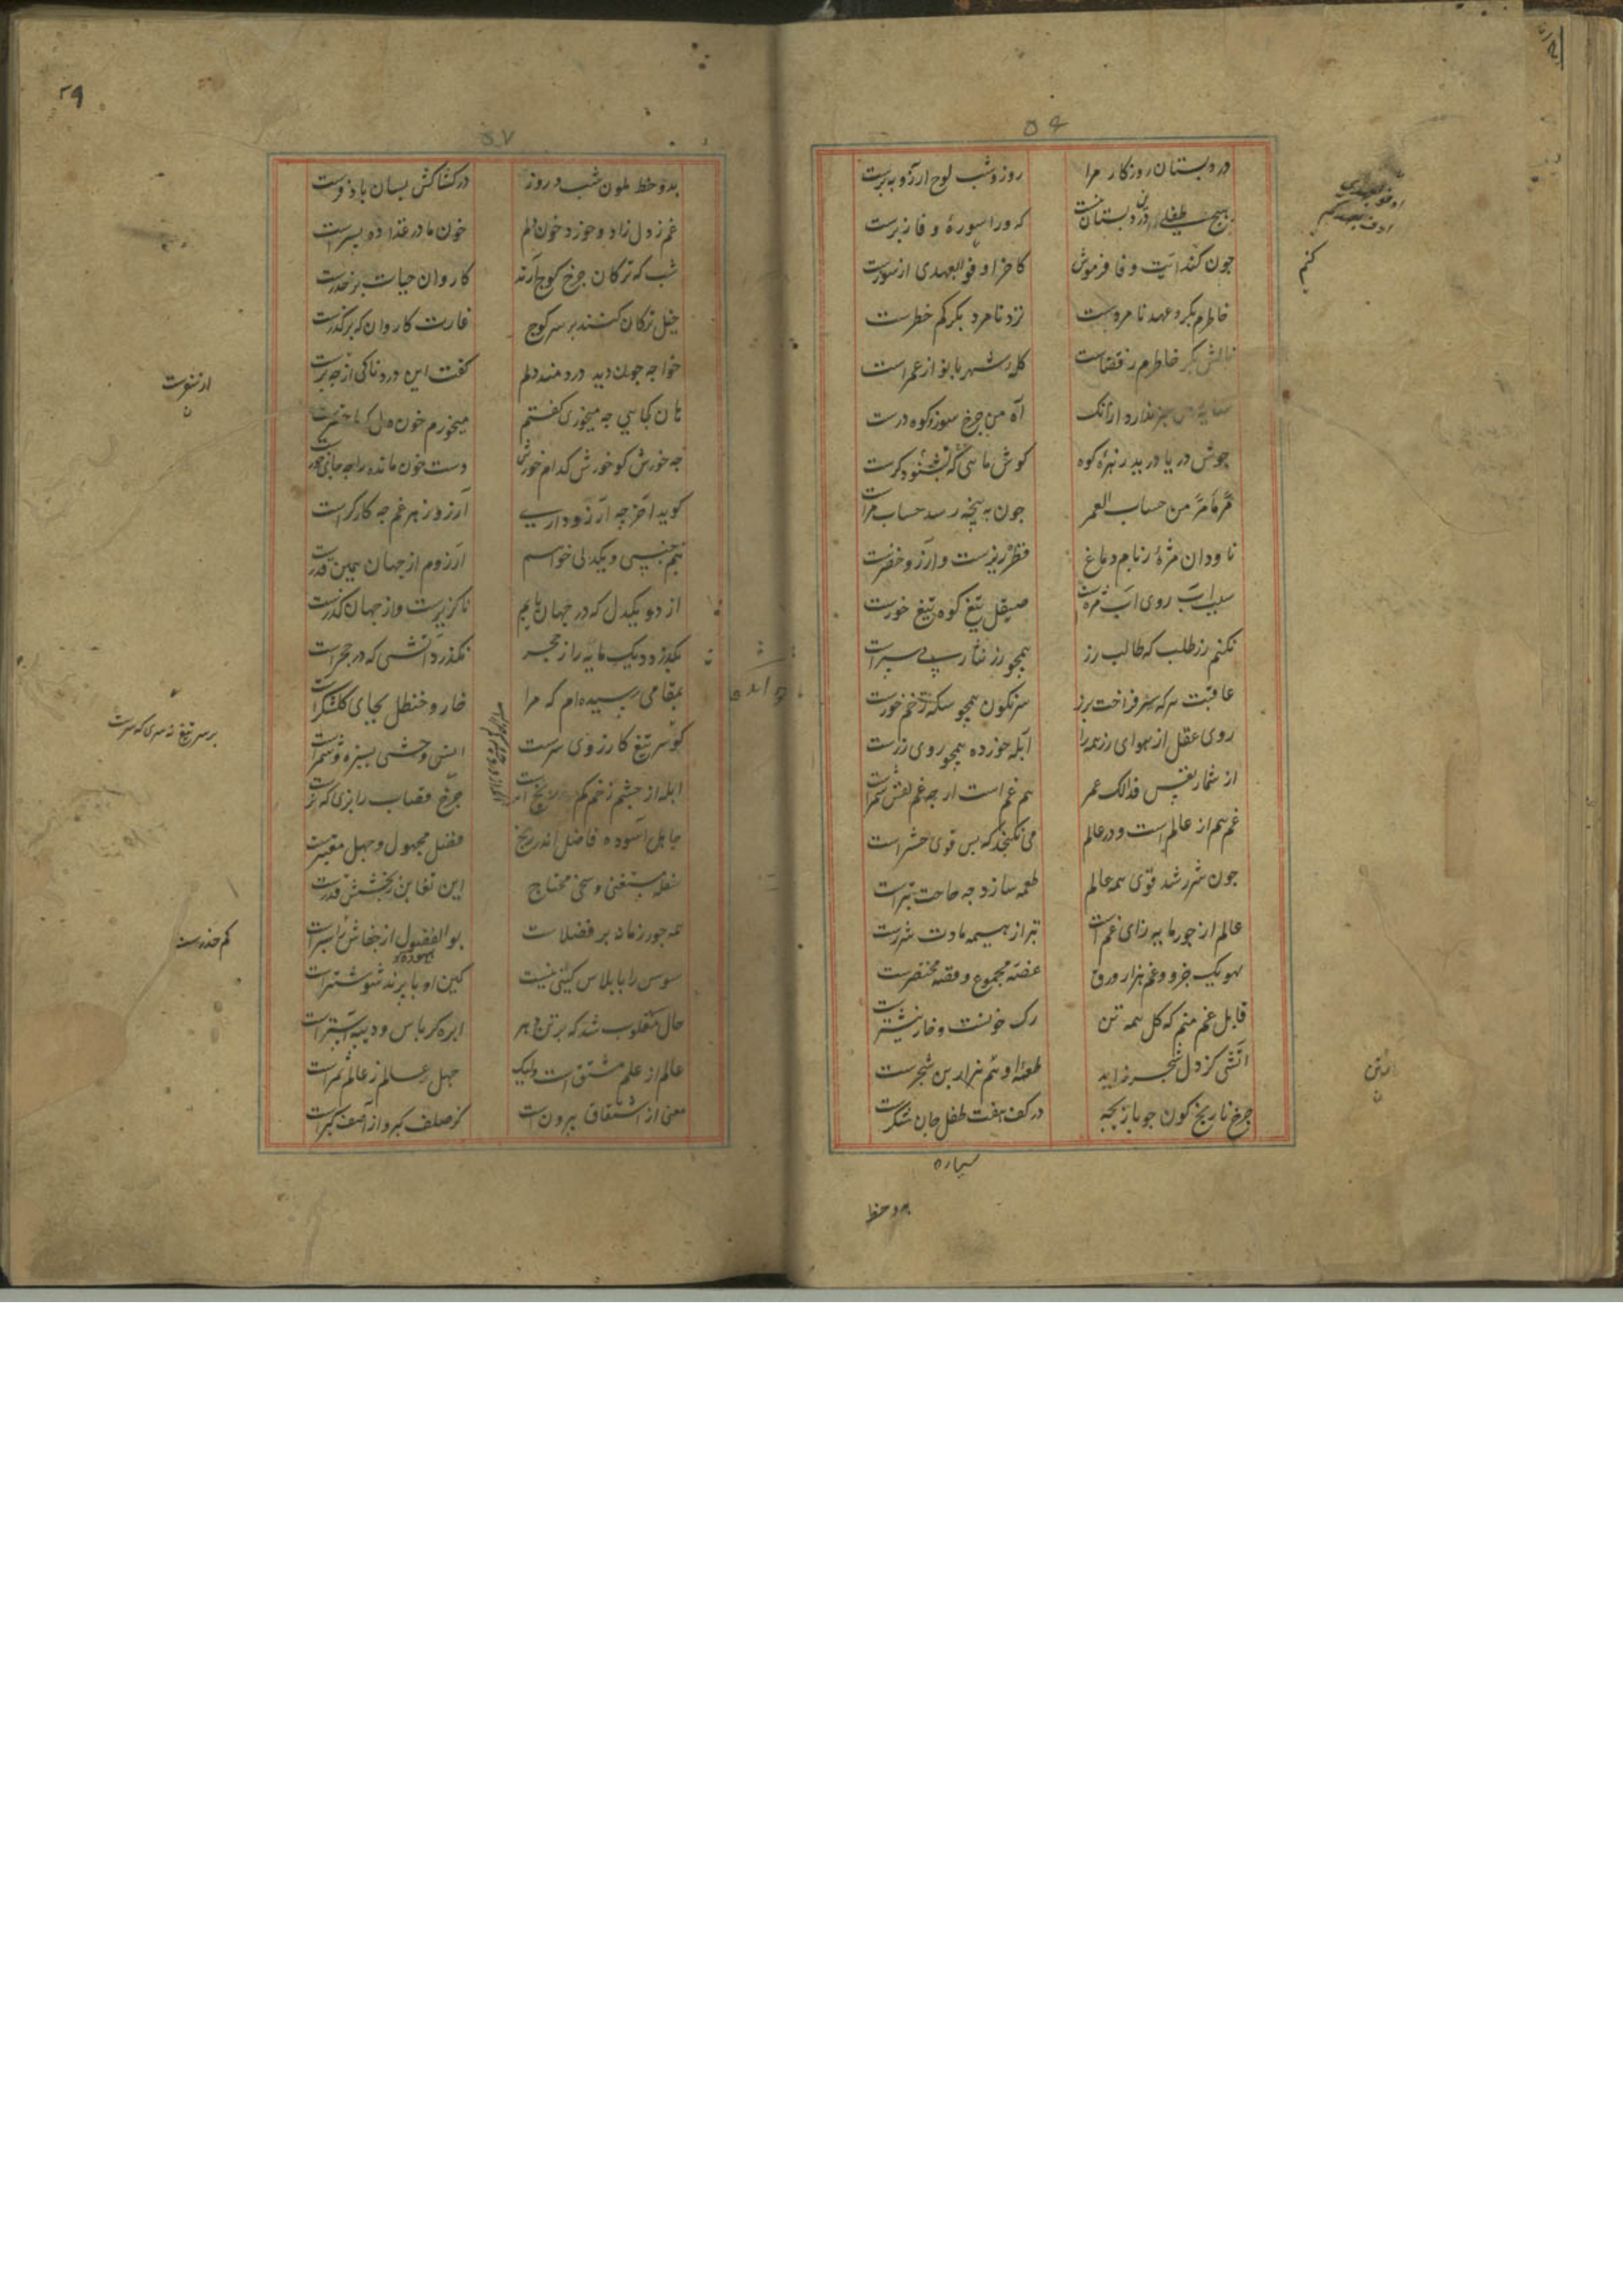 ۵۶
در دبستان روزکار مرا روز و شب لوح ارزو به برست
هیچ طفلی درین دبستان نیست که ورا سورهٔ وفا زبرست
چون کند ایت وفا فرموش کاخر اوفوا بعهدی از سورست
خاطرم بکر و عهد نامردست نزد نامرد بکر کم خطرست
نالش بکر خاطرم ز قضاست کلهٔ شهربانو از عمرست
سایهٔ من جز ندارد ازانک اه من چرخ سوز و کوه درست
جوش دریا درید زهرهٔ کوه کوش ماهی که نشنود کرست
مر مامر من حساب العمر چون به پنجه رسد حساب مرست
ناودان مژه ز بام دماغ قطره ریزست و ارزو خضرست
سبب اب روی اب مژه است صیقل تیغ کوه تیغ خورست
نکنم زر طلب که طالب زر همچو زر نثار پی سپراست
عاقبت هر که سر فراخت بزر سرنکون همچو سکه زخم خورست
روی عقل از هوای زر همه را ابله خورده همچو روی زرست
از شمار نفس فذالک عمر هم غم است ار چه غم نفس شمرست
غم هم از عالم است و در عالم می نکنجد که بس قوی حشراست
چون شرر شد قوی همه عالم طعمه سازد چه حاجت تبراست
عالم از جور مایه زای غم است تبر از هیمه مادت شررست
بهو یک جزو و غم هزار ورق غصه مجموع و قصه مختصرست
قابل غم منم که کل همه تن رک خونست و خار نیشترست
اتشی کز دل شجر زاید طعمهٔ او هم هزار بن شجرست
چرخ نارنج کون چو بازیچه در کف هفت طفل جان شکرست
سیاره
بدو خط
کنم
۵۷
۲۹
بدو خط ملون شب و روز در کشاکش بسان باد فرست
غم ز دل زاد و خورد خون دلم خون مادر غذا ده پسراست
شب که ترکان چرخ کوچ ارند کاروان حیات بر حذرست
خیل ترکان کنند بر سر کوچ غارت کاروان که بر کذرست
خواجه چون دید دردمند دلم کفت این دردناکی از چه برست
هان کجایی چه میخوری کفتم میخورم خون دل که ما حضرست
چه خورش کو خورش کدام خورش دست خون مانده را چه جای خورست
کوید اخر چه ارزو داری ارزو زهر غم چه کارکراست
نیم جنسی و یکدلی خواهم ارزوم از جهان همین قدرست
از دو یکدل که در جهان یابم ناکزیرست و از جهان کذرست
بکذرد دیک مایه را ز حجر نکذرد اتشی که در حجراست
بمقامی رسیده ام که مرا خار و حنظل بجای کلشکراست
کو سر تیغ کارزوی سرست انس وحشی بسبزه و شمرست
ابله از چشم زخم کم رنج است چرخ قصاب را بزی که نزست
جاهل اسوده فاضل اندر رنج فضل مجهول و جهل معتبرست
سفله مستغنی و سخی محتاج این تغابن ز بخشش قدرست
همه جور زمانه بر فضلاست بوالفضول از جفاش بر اسراست
سوس را با پلاس کینی نیست کین او با پرند شوشتراست
حال مقلوب شد که بر تن دهر ابره کرباس و دیبه استراست
عالم از علم مشتق است ولیک جهل عالم ز عالم ثمراست
معنی از اشتقاق بیرون است کز صلف کبر و از اصف کبراست
بر سر تیغ نه سری که سرست
کم حذرست